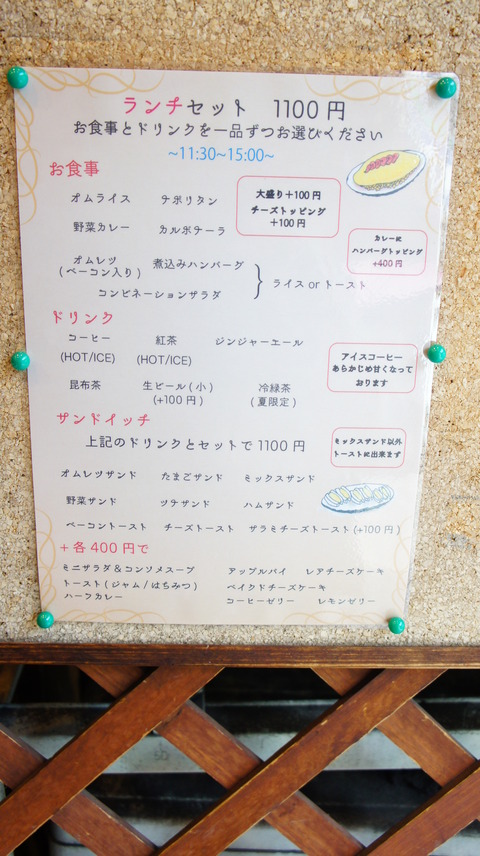 ランチセット 1100 円
お食事とドリンクを一品ずつお選びください
~11:30~15:00~
お食事
オムライス ナポリタン
大盛り＋100 円
チーズトッピング
＋100 円
野菜カレー カルボナーラ
カレーに
ハンバーグトッピング
+400 円
オムレツ
(ベーコン入り) 煮込みハンバーグ
コンビネーションサラダ
ライス or トースト
ドリンク
コーヒー 紅茶 ジンジャーエール
(HOT/ICE) (HOT/ICE)
アイスコーヒー
あらかじめ甘くなって
おります
昆布茶 生ビール(小) 冷緑茶
(+100 円) (夏限定)
サンドイッチ
上記のドリンクとセットで 1100 円
ミックスサンド以外
トーストに出来ます
オムレツサンド たまごサンド ミックスサンド
野菜サンド ツナサンド ハムサンド
ベーコントースト チーズトースト サラミチーズトースト(+100 円)
＋各 400 円で
ミニサラダ＆コンソメスープ アップルパイ レアチーズケーキ
トースト(ジャム/はちみつ) ベイクドチーズケーキ
ハーフカレー コーヒーゼリー レモンゼリー